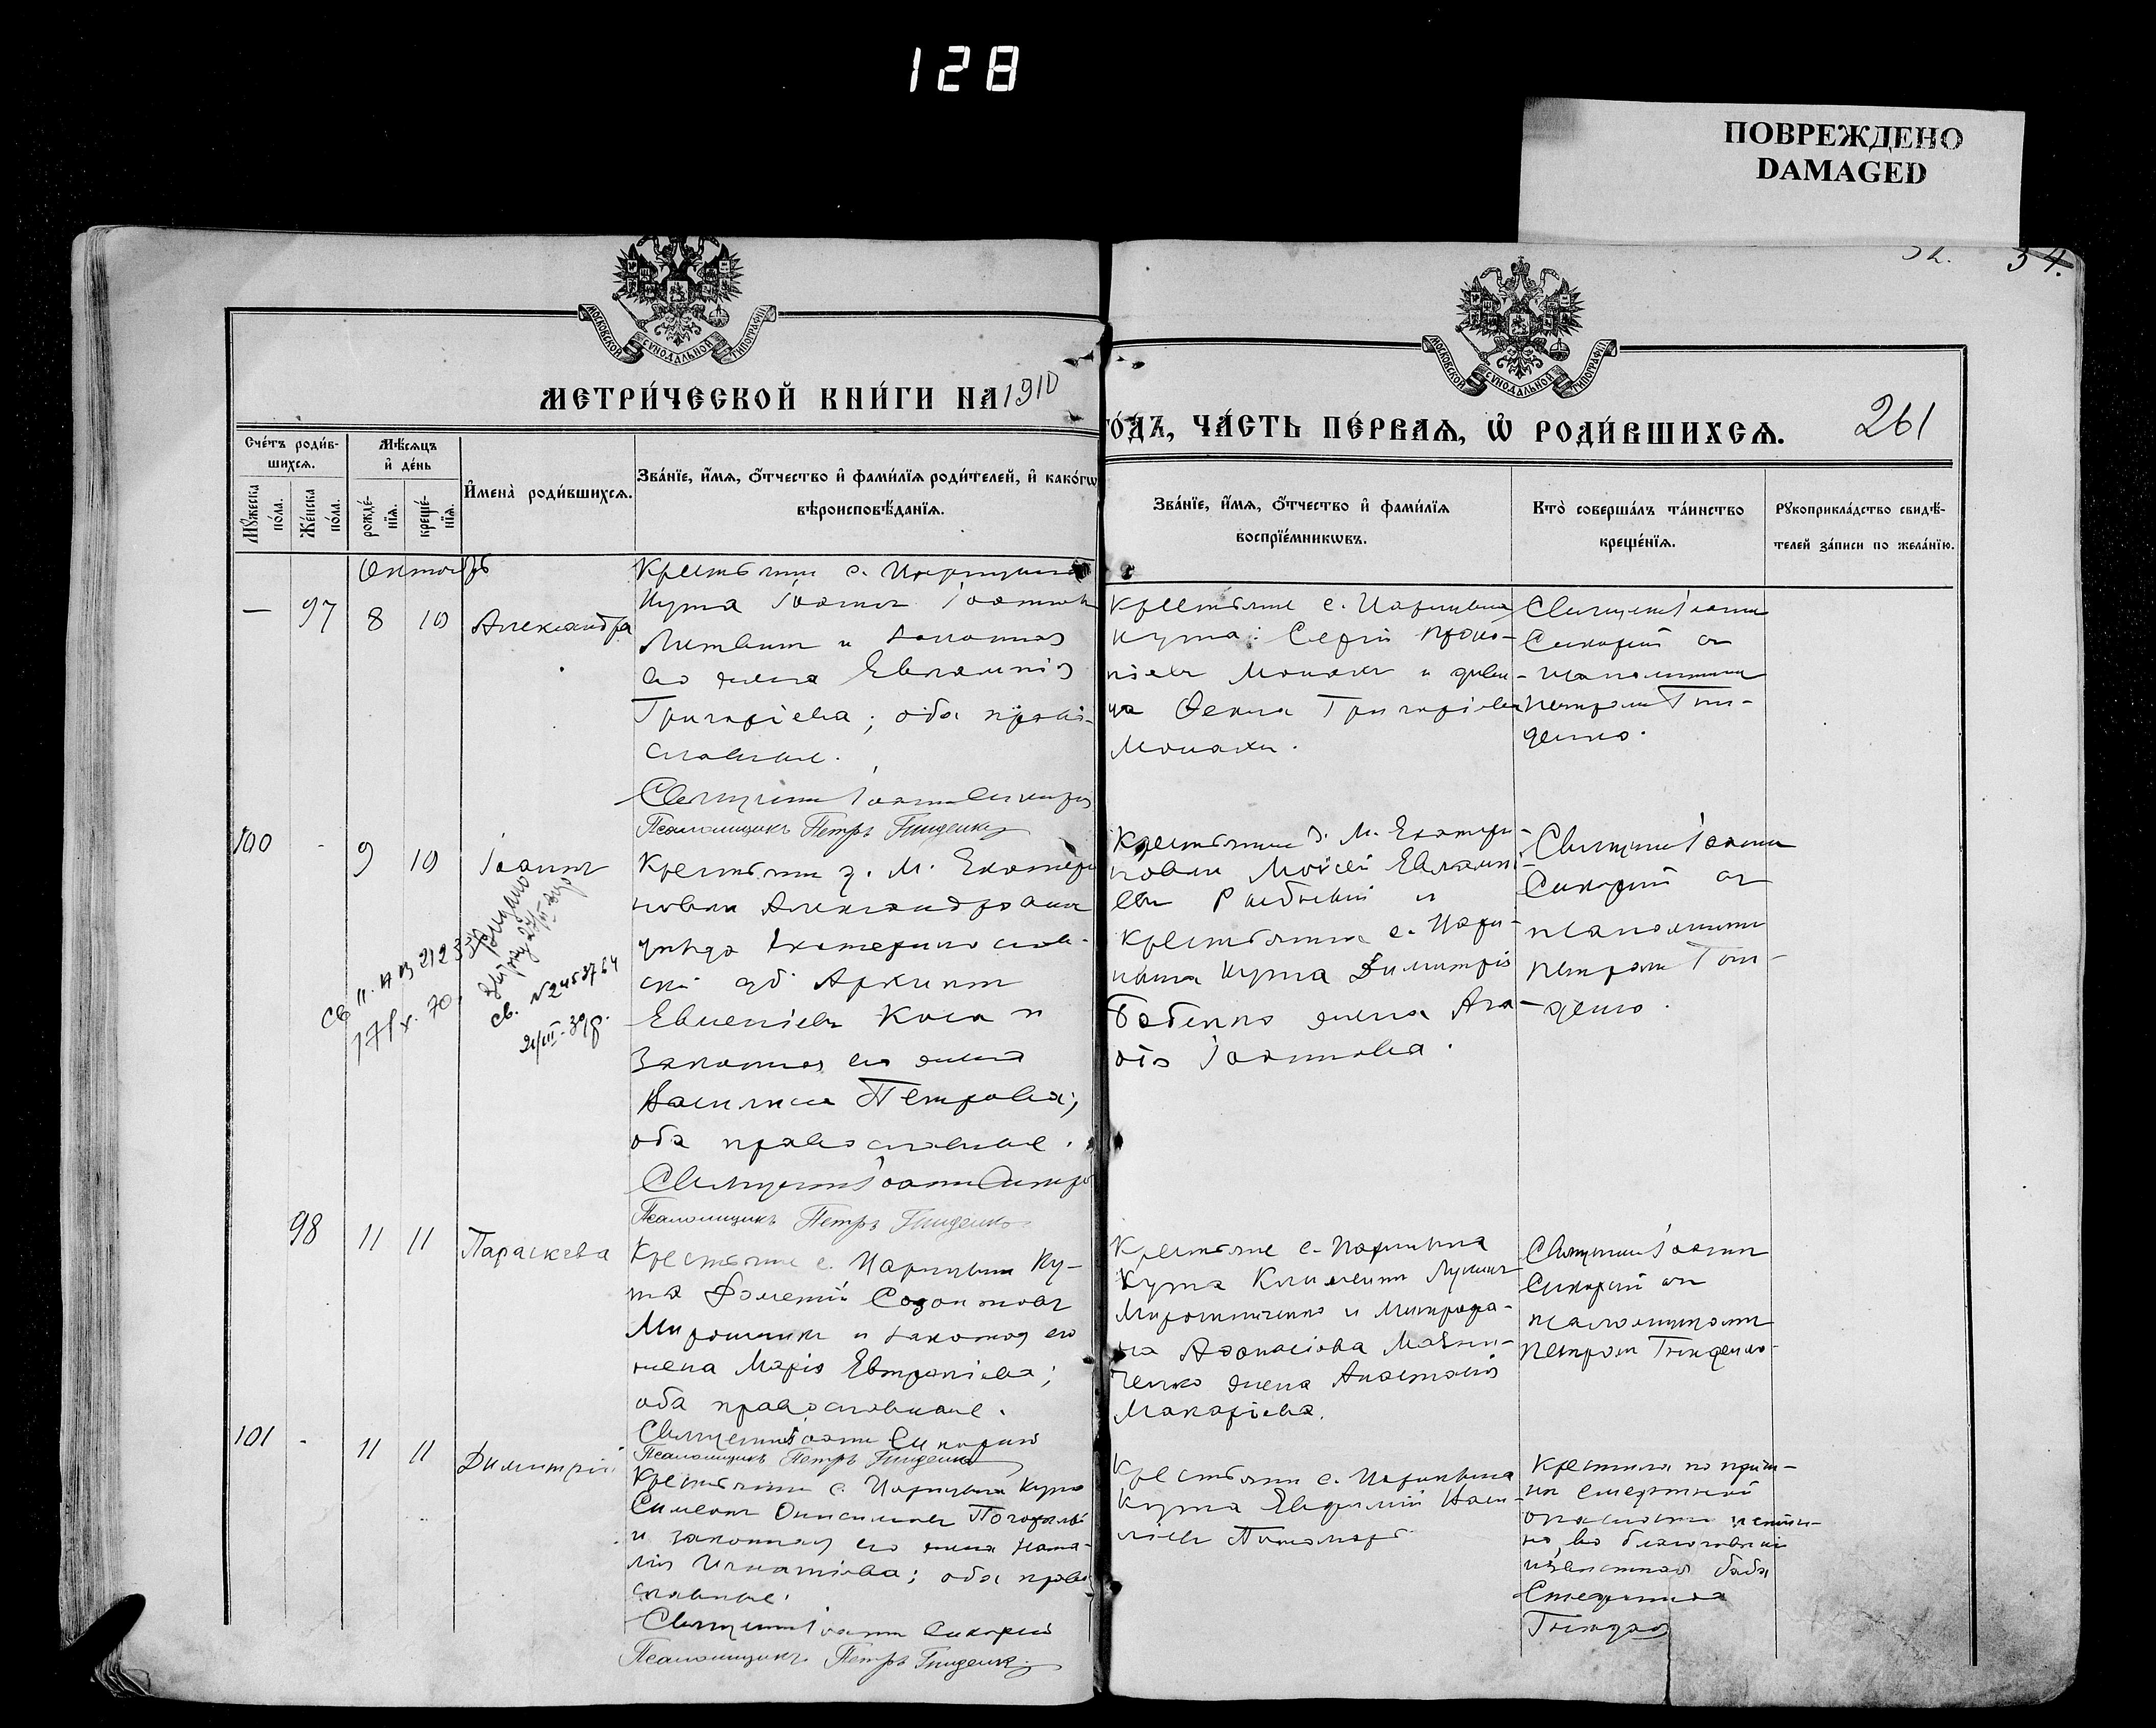 128
ПОВРЕЖДЕНО
DAMAGED
34.
МОСКОВСКОЙ СѴНОДАЛЬНОЙ ТИПОГРАФІИ
МОСКОВСКОЙ СѴНОДАЛЬНОЙ ТИПОГРАФІИ
МЕТРИ́ЧЕСКОЙ КНИ́ГИ НА 1910
ГО́ДЪ, ЧА́СТЬ ПЕ́РВАѦ, Ѡ҆ РОДИ́ВШИХСѦ.
261
Сче́тъ роди́в-
шихсѧ.
Мѣ́сѧцъ
и҆ де́нь
Мꙋ́жеска
по́ла.
Же́нска
по́ла.
рожде́-
нїѧ.
креще́-
нїѧ.
И҆мена̀ роди́вшихсѧ.
Зва́нїе, и҆́мѧ, ѻ҆́тчество и҆ фами́лїѧ роди́телей, и҆ како́гѡ
вѣроисповѣ́данїѧ.
Зва́нїе, и҆́мѧ, ѻ҆́тчество и҆ фами́лїѧ
воспрїе́мникѡвъ.
Кто̀ соверша́лъ та́инство
креще́нїѧ.
Рꙋкоприкла́дство свидѣ́-
телей за́писи по жела́нїю.
Октябрь
— 97 8 10 Александра
Крестьянин с. Царицына
Кута Іоанн
Литвин и законная
его жена Евлампія
Григоріева; оба право-
славные.
Священ Іоанн Сикорій
Псаломщикъ Петръ Гниденко
Крестьяне с. Царицына
Кута: Сергій Проко-
піев Монахъ и деви-
ца Ѳекла Григоріева
Монахъ.
Священ Іоанн
Сикорій съ
псаломщиком
Петром Гни-
денко.
100 - 9 10 Іоаннъ
Крестьянин д. М. Екатери
новки Александровск
уѣзда Екатеринослав-
ск губ Архипъ
Евгеніевъ Коса и
законная его жена
Василиса Петрова;
оба православные.
Священ Іоанн Сикорій
Псаломщикъ Петръ Гниденко
св. N 2453764
21/III-39 г.
Крестьянин д. М. Екатери-
новки Моисей Евлампі
евъ и
крестьянина с. Цари-
цына Кута Димитрія
Бабенко жена Ага
ѳія Іоаннова.
Священ Іоанн
Сикорій съ
псаломщиком
Петром Гни-
денко.
98 11 11 Параскева
Крестьянин с. Царицына Ку-
та Фометій Созонтовъ
Мирошник и законная его
жена Марія Евтропіева;
оба православные.
Священ Іоанн Сикорій
Псаломщикъ Петръ Гниденко
Крестьяне с. Царицына
Кута Климентъ Лукинъ
Мирошниченко и Митрофа-
на Аѳанасіева
ченко жена Анастасія
Макаріева.
Священ Іоанн
Сикорій съ
псаломщиком
Петром Гниденко.
101 - 11 11 Димитрій
Крестьянин с. Царицына Кута
Симеонъ Онисимовъ Погорѣлый
и законная его жена Ната-
лія Игнатіева; оба право
славные.
Священ Іоанн Сикорій
Псаломщикъ Петръ Гниденко
Крестьянин с. Царицына
Кута Евфимій Васи-
ліевъ Пономарь
Крестила по причи-
не смертной
опасности
но, во благочестіи
извѣстная баба
Екатерина